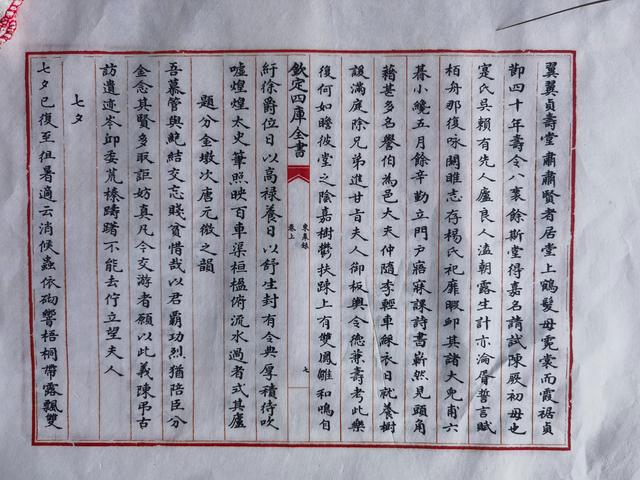 翼翼貞壽堂肅肅賢者居堂上鶴髮母霓裳而霞裾貞
節四十年壽令八袠餘斯堂得嘉名請試陳厥初母也
寔氏吳賴有先人廬良人溘朝露生計亦淪胥誓言賦
柏舟那復咏關雎志存楊氏祀靡暇卹其諸大兒甫六
暮小纔五月餘辛勤立門戸寤寐課詩書嶄然見頭角
藉甚多名譽伯為邑大夫仲隨李輕車綵衣日就養樹
諼滿庭除兄弟進甘旨夫人御板輿令德兼壽考此樂
復何如瞻彼堂之陰嘉樹鬱扶踈上有雙鳳雛和鳴自
欽定四庫全書
東巢錄
卷上
七
紆徐爵位日以高禄養日以舒生封有令典厚積待吹
噓煌煌太史筆照映百車渠桓楹俯流水過者式其廬
題分金墩次唐元微之韻
吾慕管與鮑結交忘賤貧惜哉以君霸功烈猶陪臣分
金念其賢多取詎妨真凡今交游者願以此義陳弔古
訪遺迹岑邱委荒榛踌躇不能去佇立望夫人
七夕
七夕已復至徂暑適云消候蟲依砌響梧桐帶露飄雙